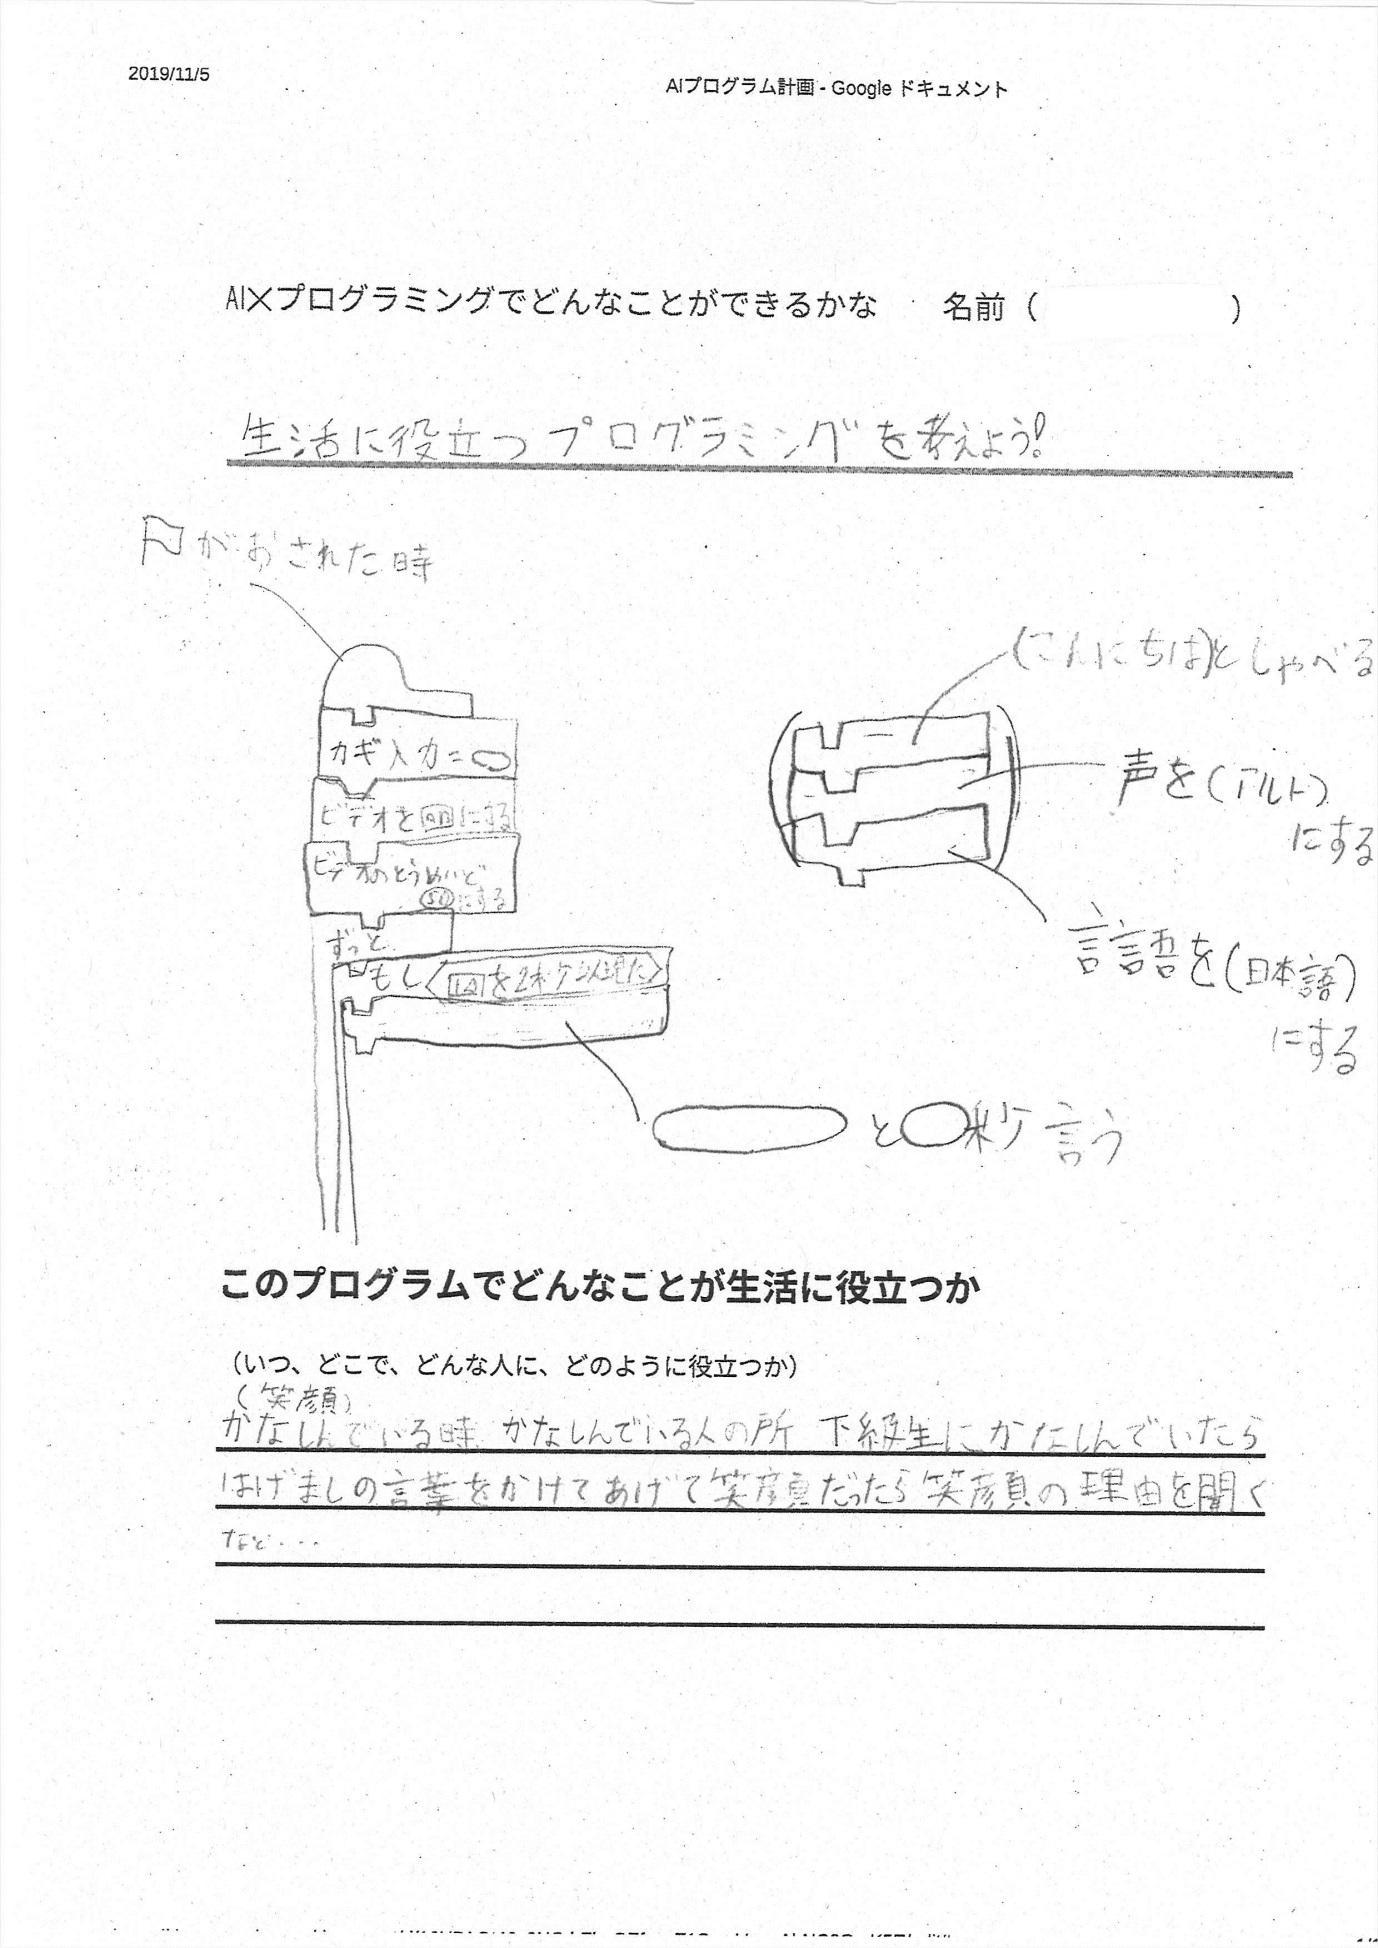 2019/11/5
AIプログラム計画 - Google ドキュメント
AI×プログラミングでどんなことができるかな 名前（ ）
生活に役立つプログラミングを考えよう!
がおされた時
カギ入力=
ビデオを にする
ビデオのとうめいど
50にする
ずっと
もし〈 を2秒 〉
と 秒言う
(こんにちは)としゃべる
声を(アルト)
にする
言語を(日本語)
にする
このプログラムでどんなことが生活に役立つか
（いつ、どこで、どんな人に、どのように役立つか）
(笑顔)
かなしんでいる時 かなしんでいる人の所 下級生にかなしんでいたら
はげましの言葉をかけてあげて笑顔だったら笑顔の理由を聞く
など...